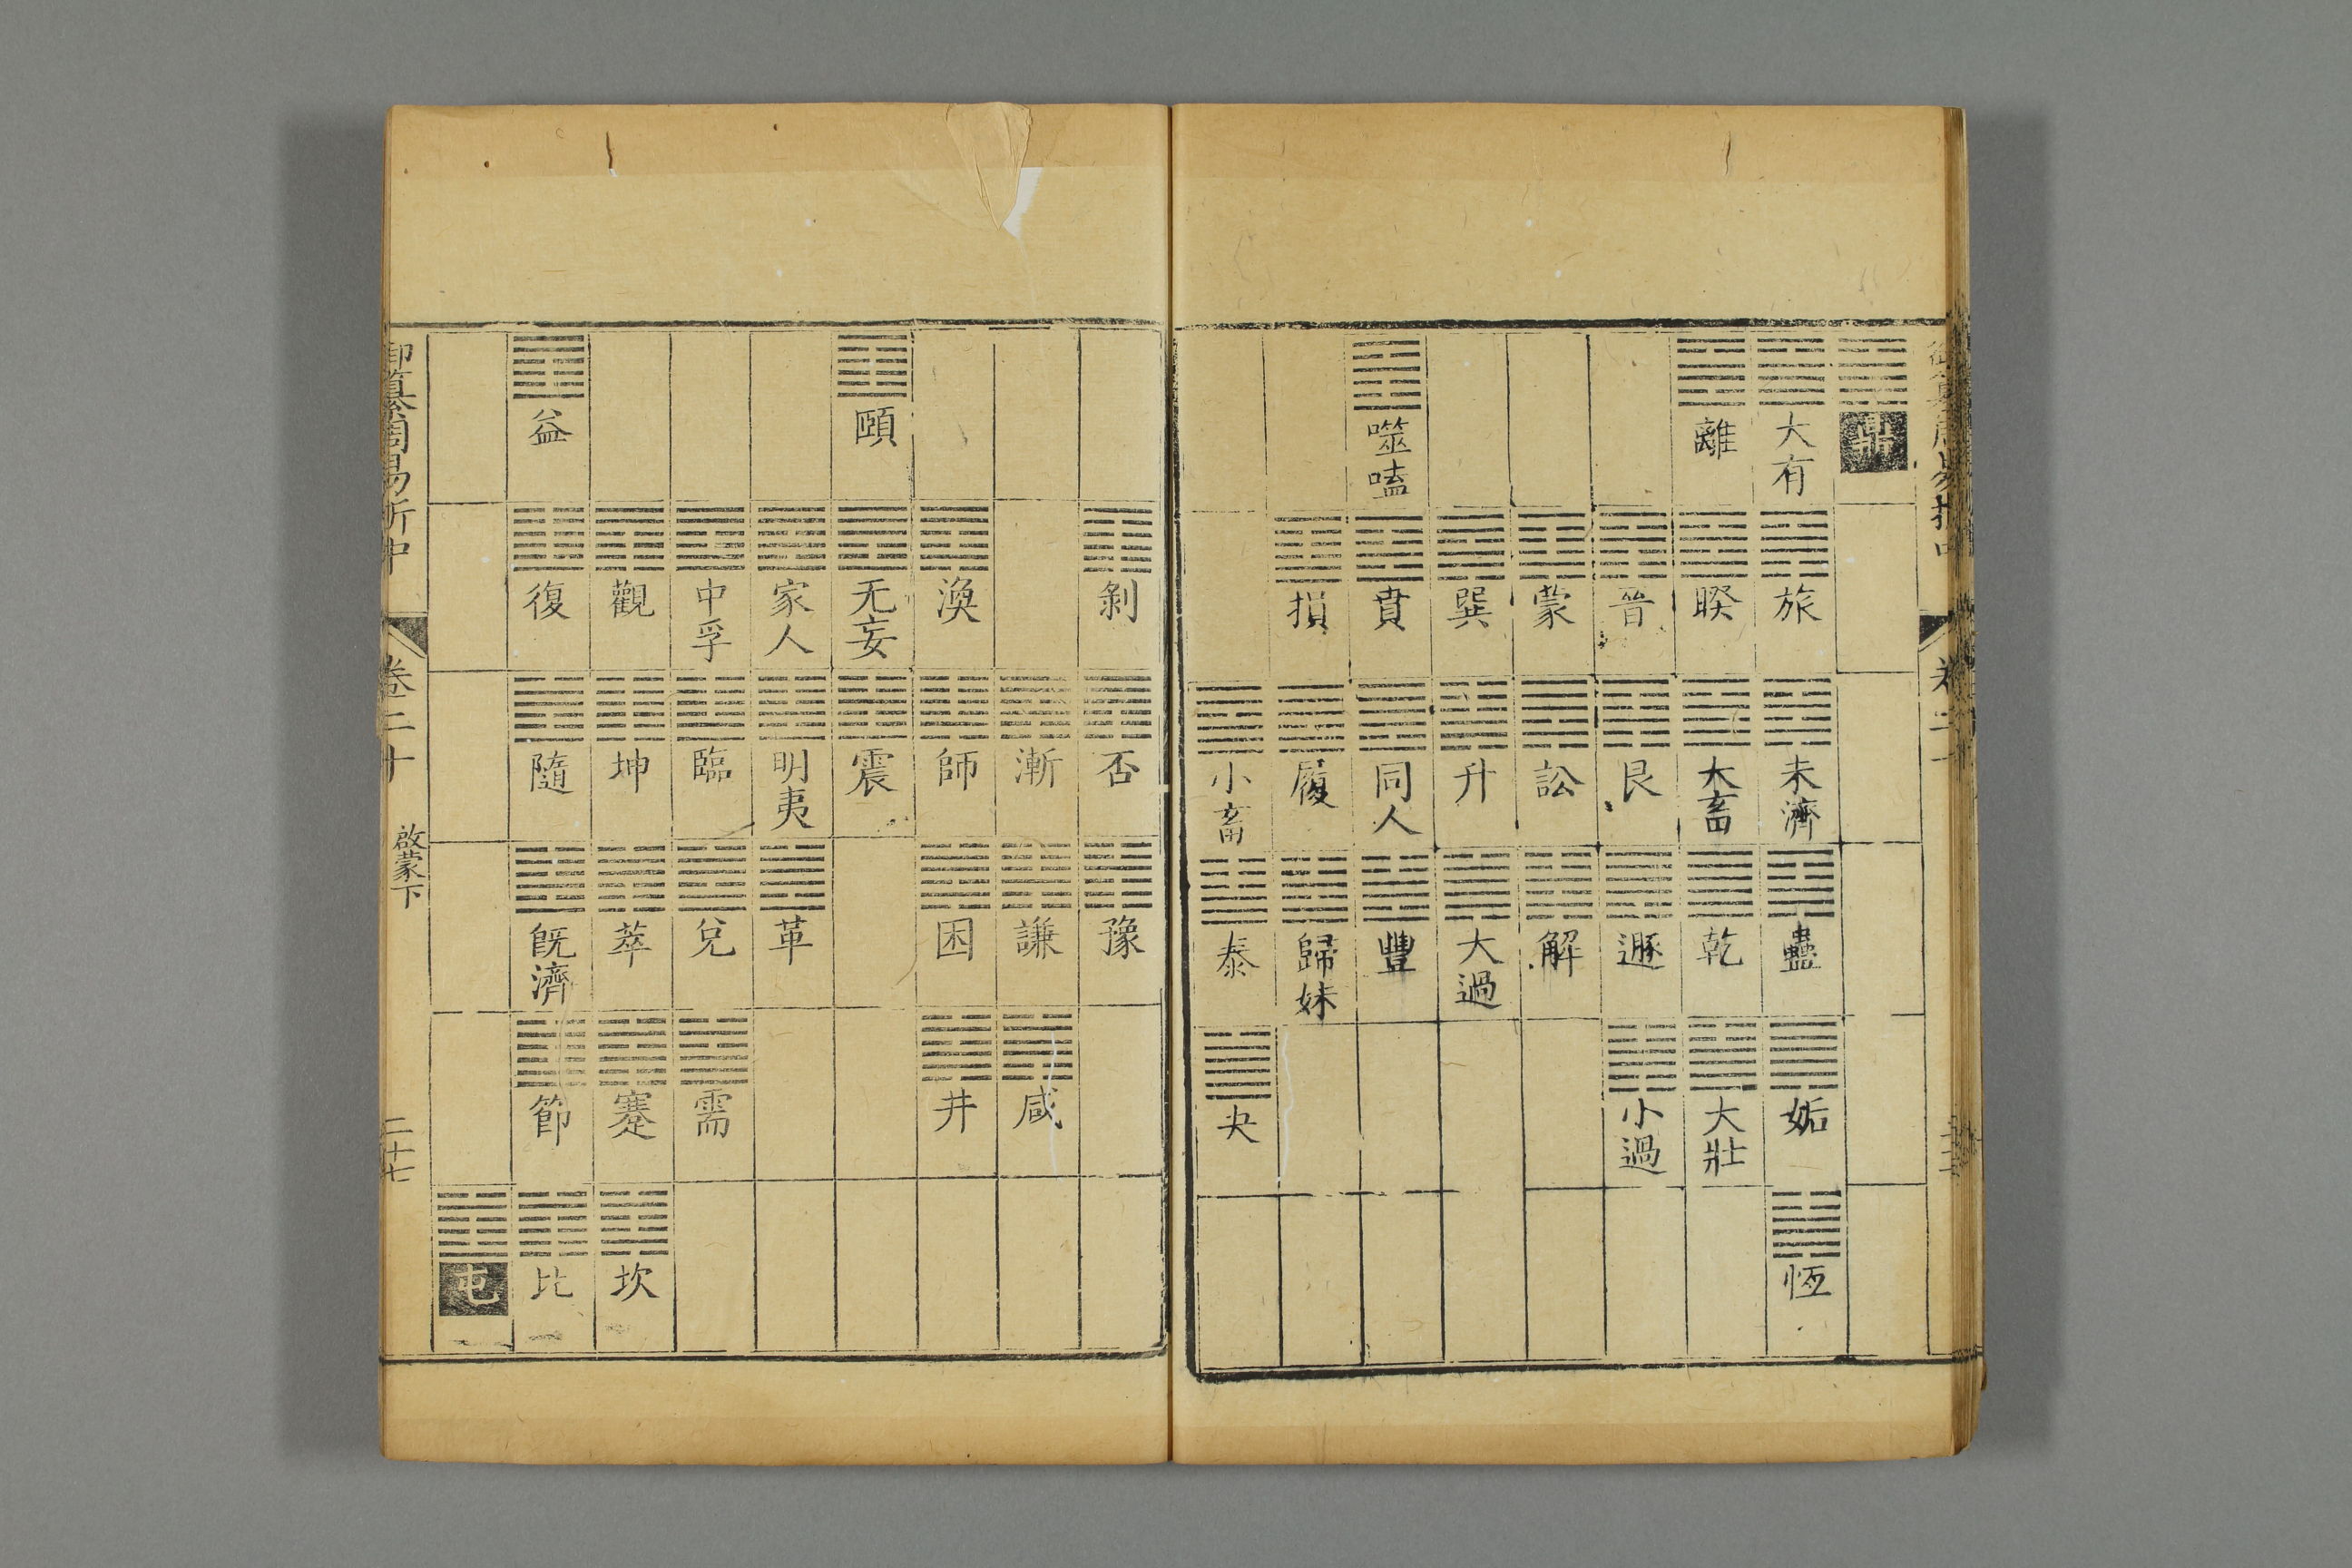 鼎
大有 旅 未濟 蠱 姤 恆
離 睽 大畜 乾 大壯
晉 艮 遯 小過
蒙 訟 解
巽 升 大過
噬嗑 賁 同人 豐
損 履 歸妹
小畜 泰 夬
剝 否 豫
漸 謙 咸
渙 師 困 井
頤 无妄 震
家人 明夷 革
中孚 臨 兌 需
觀 坤 萃 蹇 坎
益 復 隨 旣濟 節 比
屯
御纂周易折中 卷二十 啟蒙下 二十七